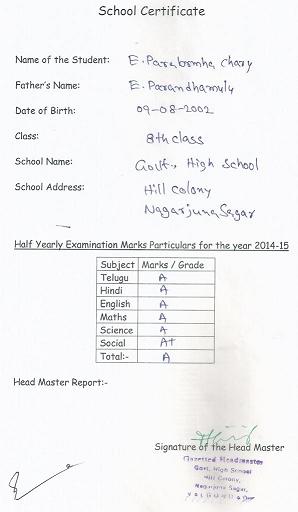 School Certificate
Name of the Student: E. Parabramha Chary
Father's Name: E. Parandhamulu
Date of Birth: 09-08-2002
Class: 8th class
School Name: Govt., High School
School Address: Hill Colony
Nagarjuna Sagar
Half Yearly Examination Marks Particulars for the year 2014-15
Subject Marks / Grade
Telugu A
Hindi A
English A
Maths A
Science A
Social A+
Total:- A
Head Master Report:-
Signature of the Head Master
Gazetted Headmaster
Govt. High School
Hill Colony,
Nagarjuna Sagar,